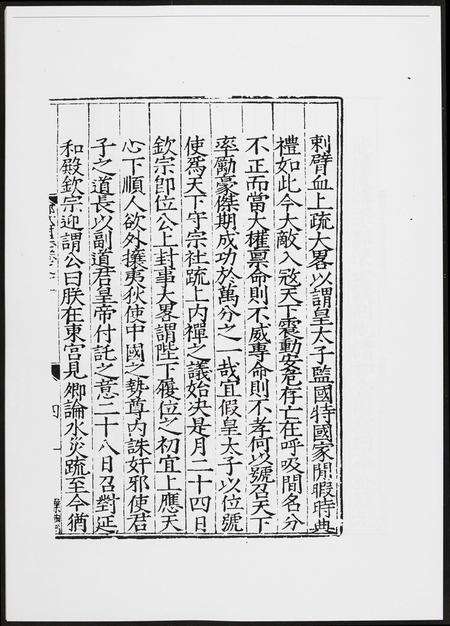 刺臂血上疏大畧以謂皇太子監國特國家閒暇時典
禮如此今大敵入𡨥天下震動安危存亡在呼吸間名分
不正而當大權禀命則不威專命則不孝何以號召天下
率勵豪傑期成功於萬分之一哉宜假皇太子以位號
使爲天下守宗社疏上内禪之議始决是月二十四日
欽宗卽位公上封事大畧謂陛下履位之初宜上應天
心下順人欲外攘夷狄使中國之勢尊内誅奸邪使君
子之道長以副道君皇帝付託之意二十八日召對延
和殿欽宗迎謂公曰朕在東宫見卿論水災疏至今猶
四